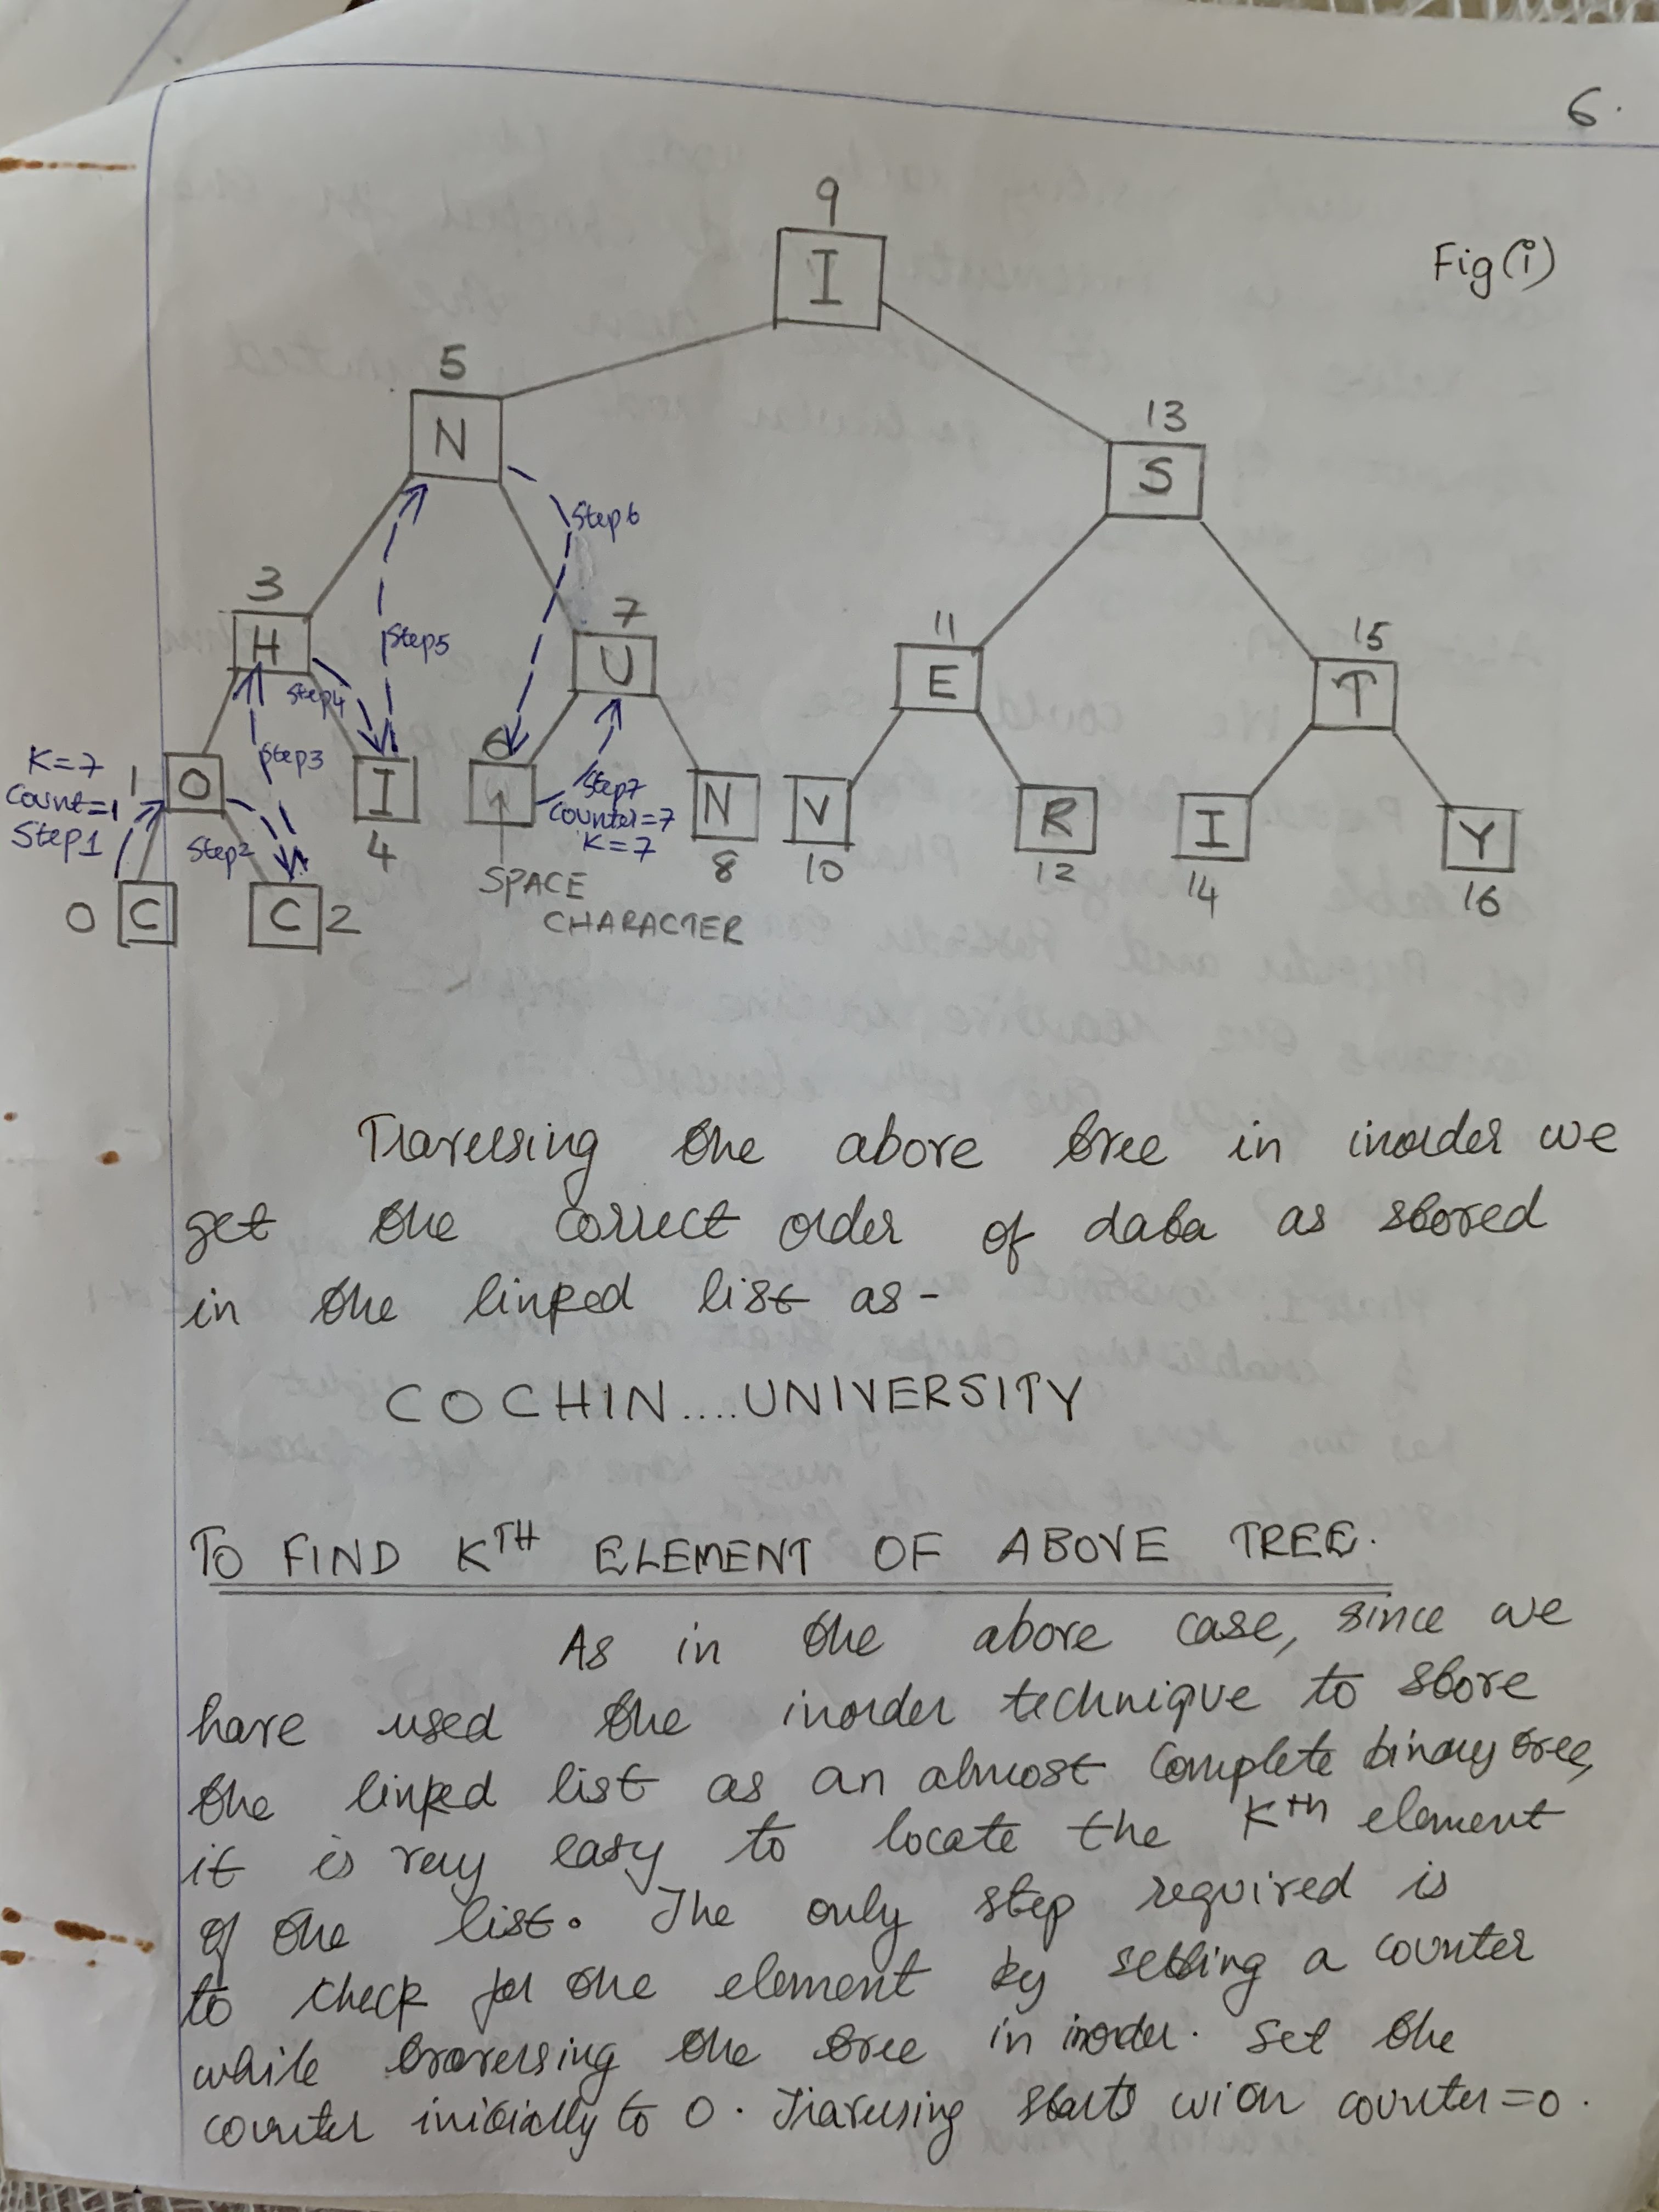 6.
Fig(i)
9
I
5
N
13
S
3
H
Step6
Step5
7
U
11
E
15
T
Step4
K=7
Count=1
Step1
1
O
Step3
Step2
I
4
6
SPACE
CHARACTER
Step7
Counter=7
K=7
N
8
V
10
R
12
I
14
Y
16
0 C
C 2
Traversing the above tree in inorder we
get the correct order of data as stored
in the linked list as-
COCHIN....UNIVERSITY
TO FIND KTH ELEMENT OF ABOVE TREE.
As in the above case, since we
have used the inorder technique to store
the linked list as an almost complete binary tree,
it is very easy to locate the Kth element
of the list. The only step required is
to check for the element by setting a counter
while traversing the tree in inorder. Set the
counter initially to 0. Traversing starts with counter=0.